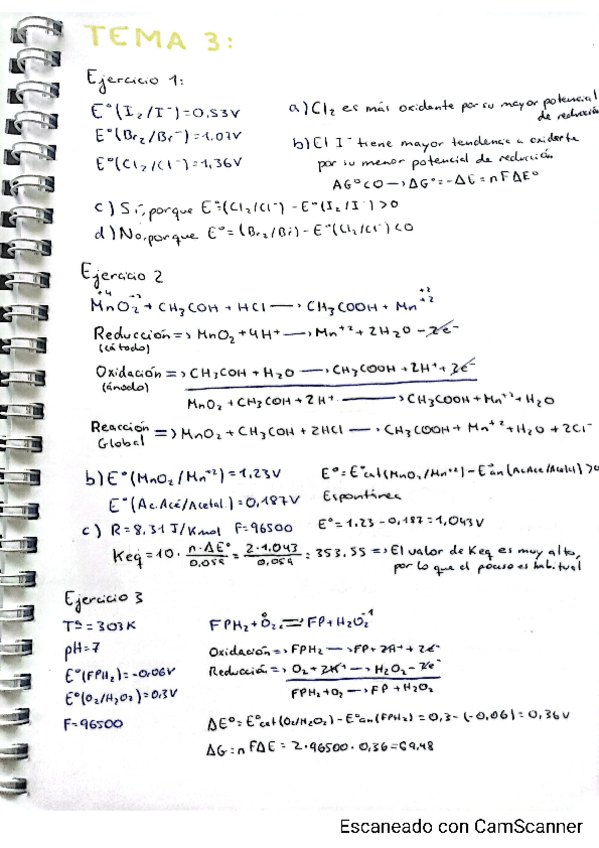 TEMA 3:
Ejercicio 1:
E°(I₂/I⁻)=0,53V
E°(Br₂/Br⁻)=1,07V
E°(Cl₂/Cl⁻)=1,36V
a) Cl₂ es más oxidante por su mayor potencial
de reducción
b) El I⁻ tiene mayor tendencia a oxidarse
por su menor potencial de reducción
ΔG°<0 → ΔG°=-ΔE=nFΔE°
c) Sí, porque E°=(Cl₂/Cl⁻) - E°(I₂/I⁻) >0
d) No, porque E°=(Br₂/Br) - E°(Cl₂/Cl⁻) <0
Ejercicio 2
+4 -2 +2
MnO₂ + CH₃COH + HCl → CH₃COOH + Mn⁺²
Reducción => MnO₂ + 4H⁺ → Mn⁺² + 2H₂O - 2e⁻
(cátodo)
Oxidación => CH₃COH + H₂O → CH₃COOH + 2H⁺ + 2e⁻
(ánodo)
MnO₂ + CH₃COH + 2H⁺ → CH₃COOH + Mn⁺² + H₂O
Reacción Global => MnO₂ + CH₃COH + 2HCl → CH₃COOH + Mn⁺² + H₂O + 2Cl⁻
b) E°(MnO₂/Mn⁺²)=1,23V
E°(Ac.Acé/Acetal.)=0,187V
E°=E°cat(MnO₂/Mn⁺²) - E°an(AcAce/Acetal) >0
Espontánea
E°=1.23-0,187=1,043V
c) R=8,31 J/Kmol F=96500
Keq=10· n·ΔE°/0,059 = 2·1,043/0,059 = 353.55 => El valor de Keq es muy alto,
por lo que el proceso es habitual
Ejercicio 3
Tª=303K
pH=7
E°(FPH₂)=-0,06V
E°(O₂/H₂O₂)=0,3V
F=96500
FPH₂ + O₂ ⇌ FP + H₂O₂
Oxidación => FPH₂ → FP + 2H⁺ + 2e⁻
Reducción => O₂ + 2H⁺ → H₂O₂ - 2e⁻
FPH₂ + O₂ → FP + H₂O₂
ΔE°=E°cat(O₂/H₂O₂) - E°an(FPH₂) = 0,3-(-0,06) = 0,36V
ΔG=nFΔE = 2·96500·0,36=69,48
Escaneado con CamScanner